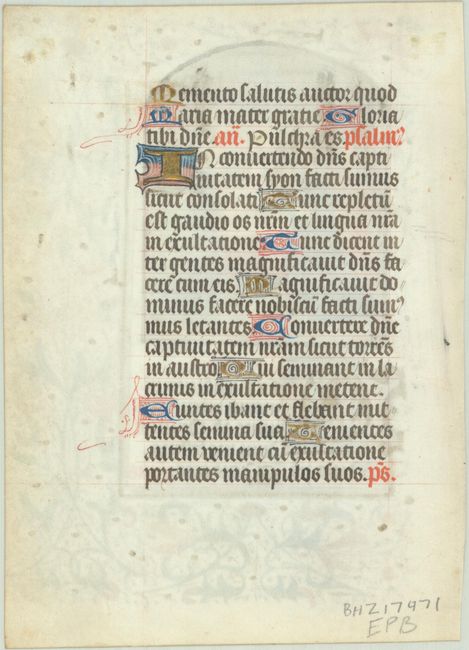 Memento salutis auctor quod
Maria mater gratie Gloria
tibi dñe. añ. Pulchra es psalm⁹
IN convertendo dñs capti
vitatem syon facti sumus
sicut consolati Tunc repletũ
est gaudio os nr̃m et lingua nr̃a
in exultatione Tunc dicent in
ter gentes magnificavit dñs fa
cere cum eis Magnificavit do
minus facere nobiscũ facti sum⁹
mus letantes Convertere dñe
captivitatem nr̃am sicut torrẽs
in austro Qui seminant in la
crimis in exultatione metent.
Euntes ibant et flebant mit
tentes semina sua Venientes
autem venient cũ exultatione
portantes manipulos suos. p̃s.
BHZ17471
EPB